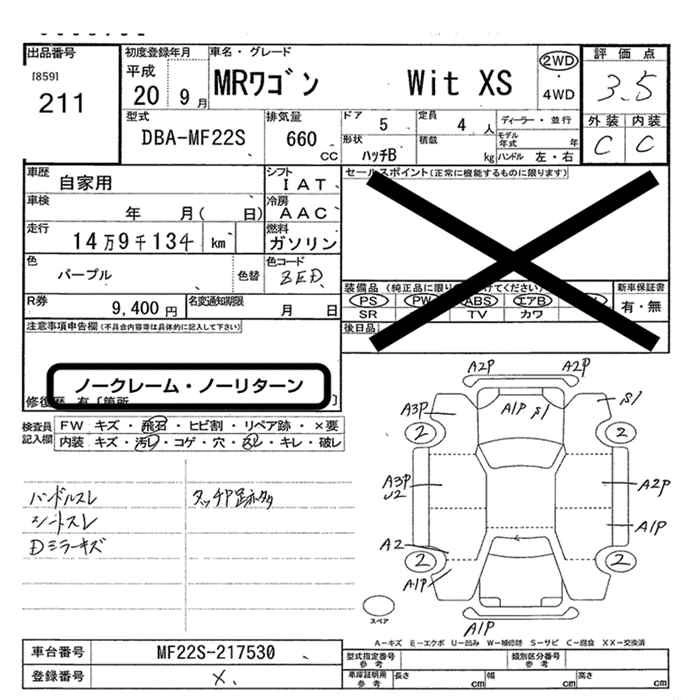 出品番号
[859]
211
初度登録年月
平成
20 9 月
車名・グレード
MRワゴン Wit XS
2WD
・
4WD
評価点
3.5
外装 内装
C C
型式
DBA-MF22S
排気量
660 CC
ドア 5
定員 4 人
ディーラー・並行
形状 ハッチB
積載 kg
モデル年式 年
ハンドル 左・右
車歴
自家用
シフト
I AT
セールスポイント(正常に機能するものに限ります)
車検
年 月( 日)
冷房
AAC
走行
14万9千134 km
燃料
ガソリン
色
パープル
色替
色コード
ZED
装備品(純正品に限り けてください)
PS PW ABS エアB
SR TV カワ
新車保証書
有・無
R券
9,400 円
名変通知期限
月 日
後日品
注意事項申告欄(不具合内容等は具体的に記入して下さい)
ノークレーム・ノーリターン
修復歴 有〔箇所 〕
検査員記入欄
FW キズ・飛石・ヒビ割・リペア跡・×要
内装 キズ・汚レ・コゲ・穴・スレ・キレ・破レ
ハンドルスレ
シートスレ
Dミラーキズ
タッチP跡多数
A2P A2P
A3P A1P S1 S1
2 2
A3P
U2
A2P
A1P
A2
2 2
A1P
A1P
スペア
A−キズ E−エクボ U−凹み W−補修跡 S−サビ C−腐食 XX−交換済
車台番号
MF22S-217530
登録番号
×.
型式指定番号
参考
類別区分番号
参考
車庫証明用
参考
長さ cm
幅 cm
高さ cm